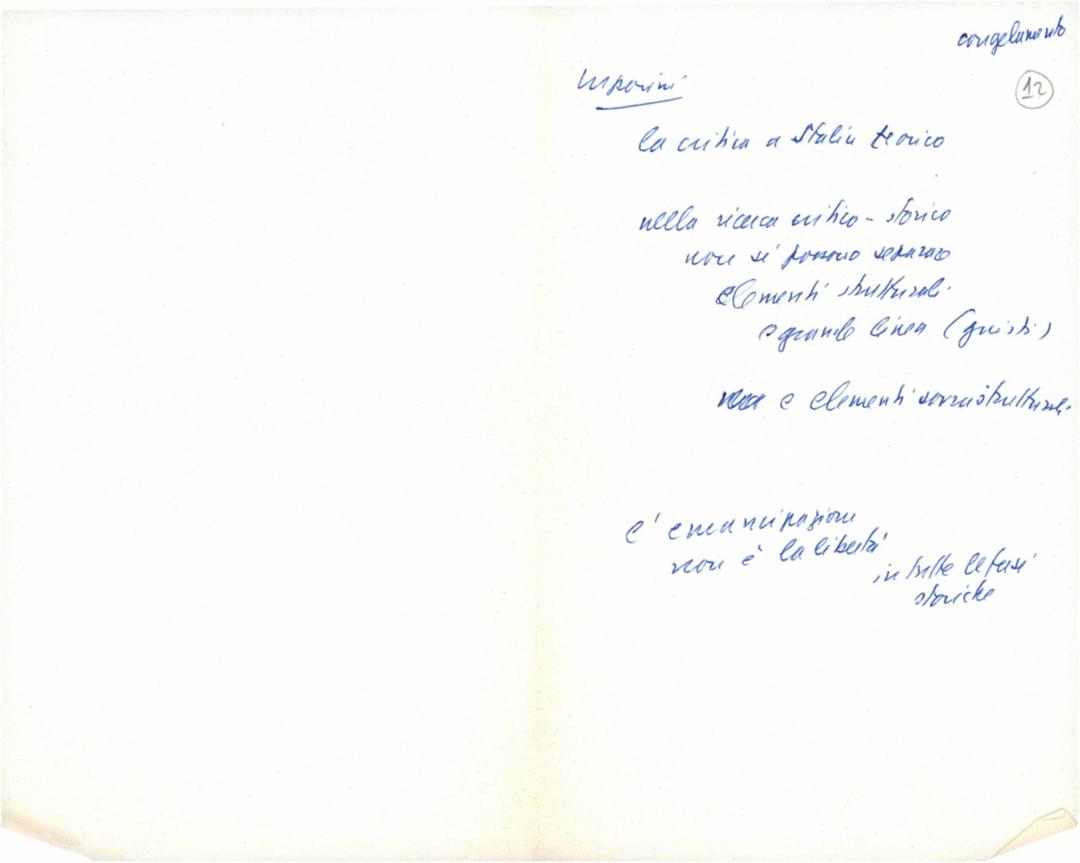 congelamento
12
Luporini
la critica a Stalin teorico
nella ricerca critico-storica
non si possono separare
elementi strutturali
e grande linea (giusti)
e elementi sovrastrutturali
l'emancipazione
non è la libertà
in tutte le fasi
storiche